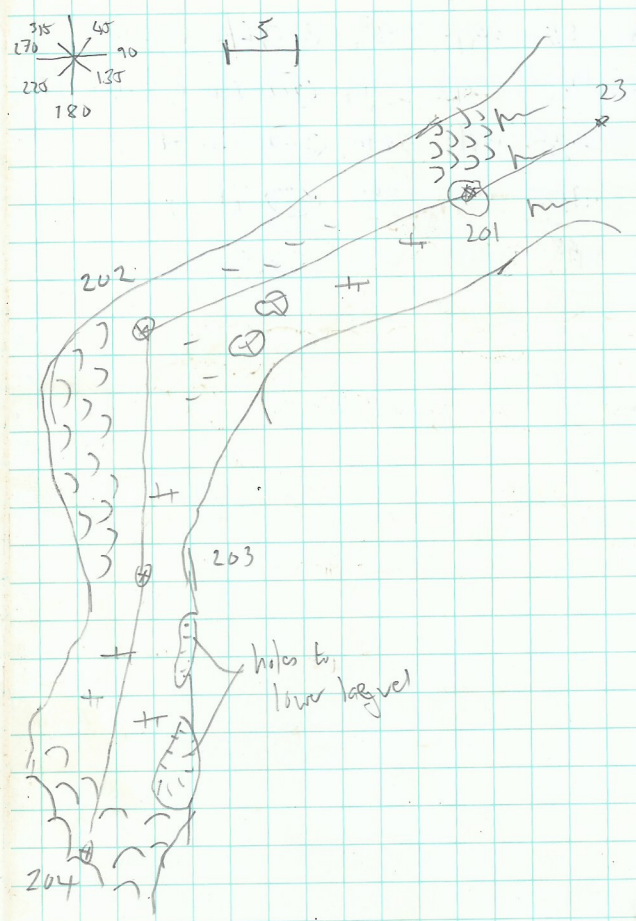 315 45
270 90
225 135
180
5
23
201
202
203
holes to
lower
204